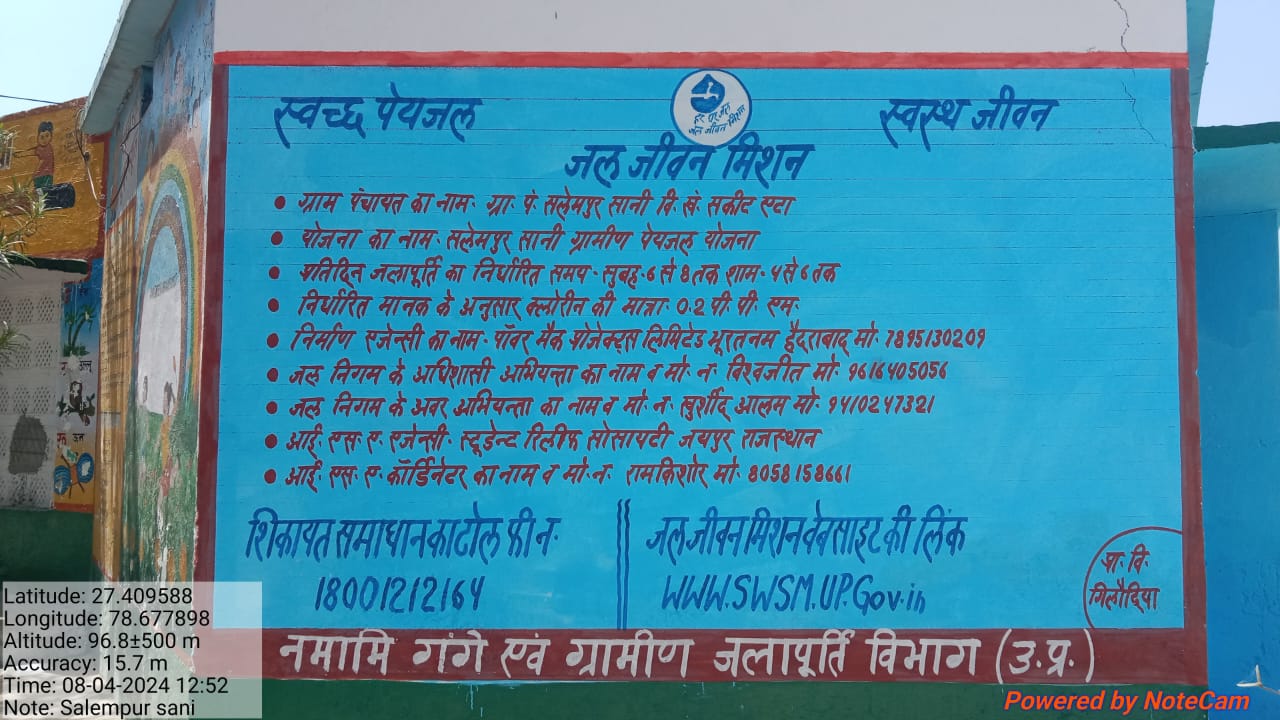 स्वच्छ पेयजल
हर घर जल
जल जीवन मिशन
स्वस्थ जीवन
जल जीवन मिशन
• ग्राम पंचायत का नाम- ग्रा॰ पं॰ सलेमपुर सानी वि॰ खं॰ सकीट एटा
• योजना का नाम- सलेमपुर सानी ग्रामीण पेयजल योजना
• प्रतिदिन जलापूर्ति का निर्धारित समय- सुबह-6 से 8 तक शाम- 4 से 6 तक
• निर्धारित मानक के अनुसार क्लोरीन की मात्रा- 0.2 पी॰ पी॰ एम॰
• निर्माण एजेन्सी का नाम- पॉवर मैक प्रोजेक्ट्स लिमिटेड भूरतनम हैदराबाद मो॰ 7895130209
• जल निगम के अधिशासी अभियन्ता का नाम व मो॰ न॰ विश्वजीत मो॰ 9616405056
• जल निगम के अवर अभियन्ता का नाम व मो॰ न॰ खुर्शीद आलम मो॰ 9410247321
• आई॰ एस॰ ए॰ एजेन्सी- स्टूडेन्ट रिलीफ सोसायटी जयपुर राजस्थान
• आई॰ एस॰ ए॰ कॉर्डिनेटर का नाम व मो॰ न॰ रामकिशोर मो॰ 8058158661
शिकायत समाधान का टोल फ्री न॰
18001212164
जल जीवन मिशन वेबसाइट की लिंक
WWW.SWSM.UP.Gov.in
प्रा॰ वि॰
गिलौदिया
नमामि गंगे एवं ग्रामीण जलापूर्ति विभाग (उ.प्र.)
Latitude: 27.409588
Longitude: 78.677898
Altitude: 96.8±500 m
Accuracy: 15.7 m
Time: 08-04-2024 12:52
Note: Salempur sani
Powered by NoteCam